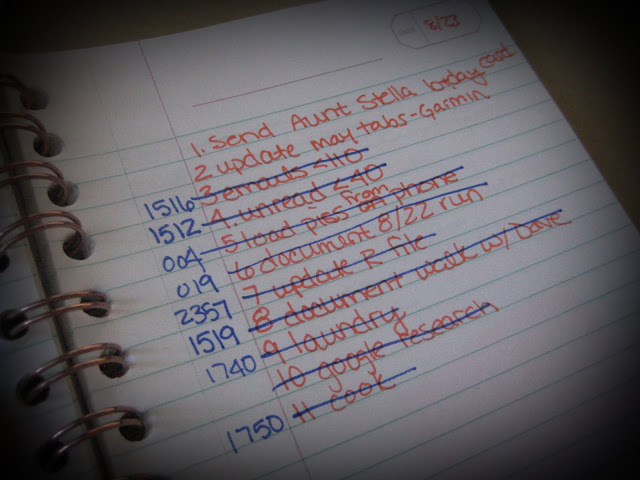 8/23
1. Send Aunt Stella bday card
2 update may tabs-Garmin
1516 3 emails <110
1512 4. unread <40
from
004 5 load pics off phone
019 6 document 8/22 run
2357 7 update R file
1519 8 document walk w/ Dave
1740 9 laundry
10 google research
1750 11 cook